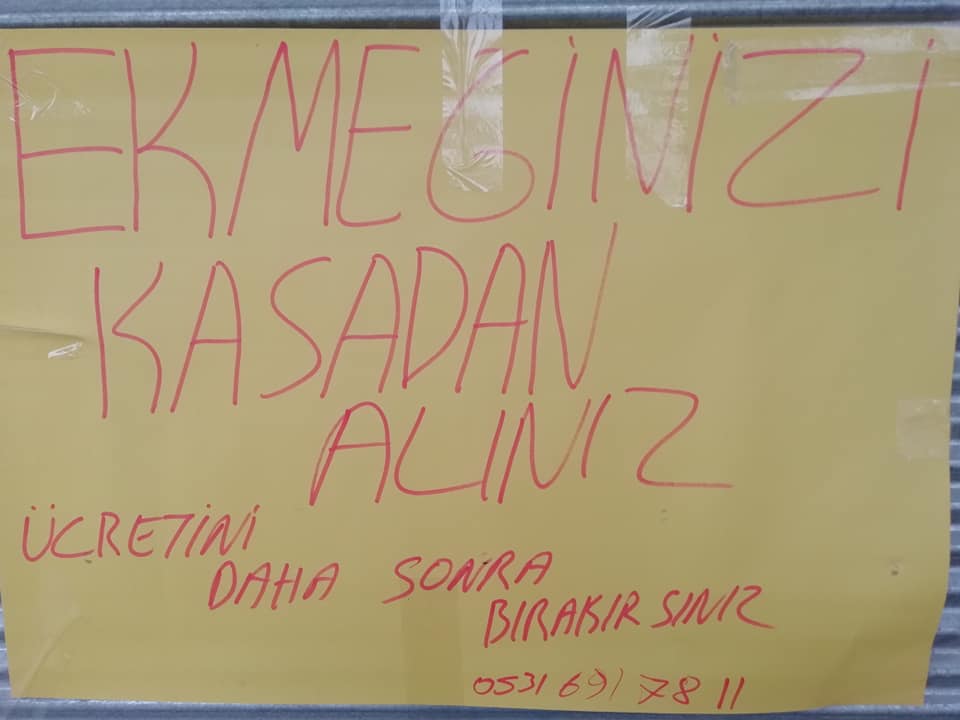 EKMEGİNİZİ
KASADAN
ALINIZ
ÜCRETİNİ
DAHA SONRA
BIRAKIRSINIZ
0531 691 78 11